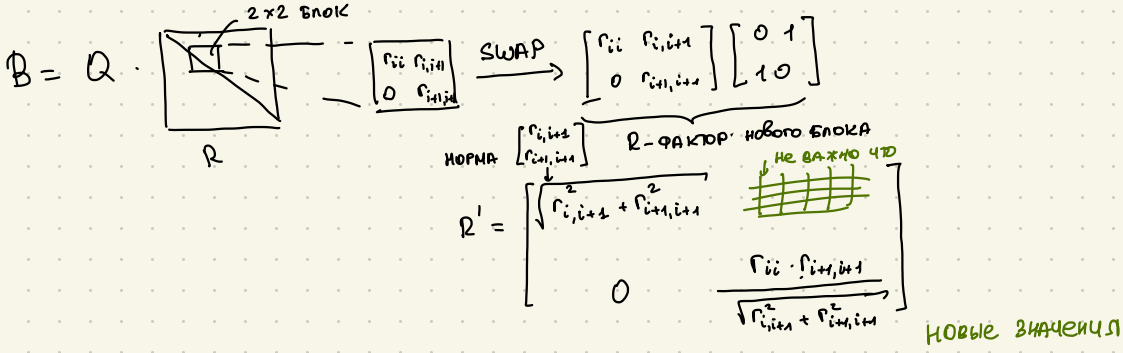 2×2 БЛОК
B = Q · [r_{ii} r_{i,i+1}; 0 r_{i+1,i+1}] SWAP → [r_{ii} r_{i,i+1}; 0 r_{i+1,i+1}] [0 1; 1 0]
R
R-ФАКТОР НОВОГО БЛОКА
НОРМА [r_{i,i+1}; r_{i+1,i+1}]
НЕ ВАЖНО ЧТО
R' = [√(r²_{i,i+1} + r²_{i+1,i+1}) ; 0 (r_{ii} · r_{i+1,i+1}) / √(r²_{i,i+1} + r²_{i+1,i+1})]
НОВЫЕ ЗНАЧЕНИЯ